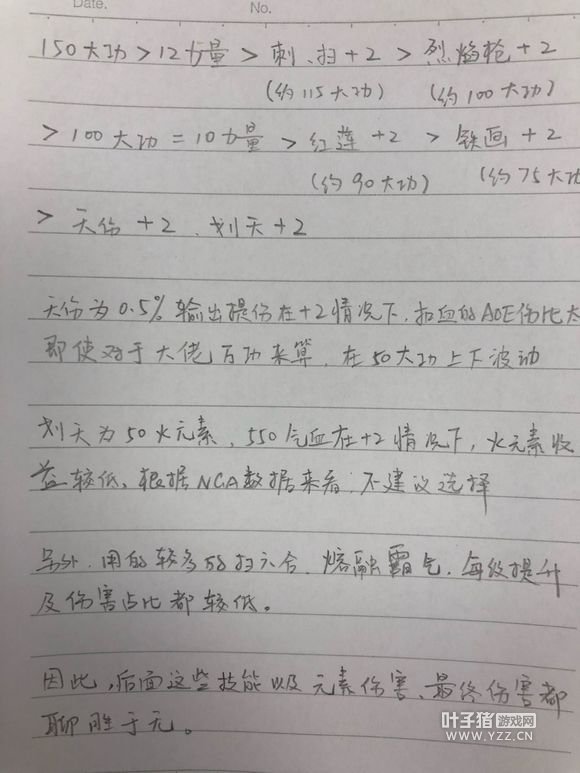 Date.
No.
150大功 > 12力量 > 刺、扫+2 > 烈焰枪+2
(约115大功) (约100大功)
> 100大功 = 10力量 > 红莲+2 > 铁画+2
(约90大功) (约75大功
> 天伤+2、划天+2
天伤为0.5%输出提伤在+2情况下,扣血的AOE伤比太
即使对于大佬百功来算,在50大功上下波动
划天为50火元素,550气血在+2情况下,火元素收
益较低。根据NGA数据来看,不建议选择
另外,用的较多的扫六合、熔融霸气,每级提升
及伤害占比都较低。
因此,后面这些技能以及元素伤害、最终伤害都
聊胜于无。
叶子猪游戏网
WWW.YZZ.CN